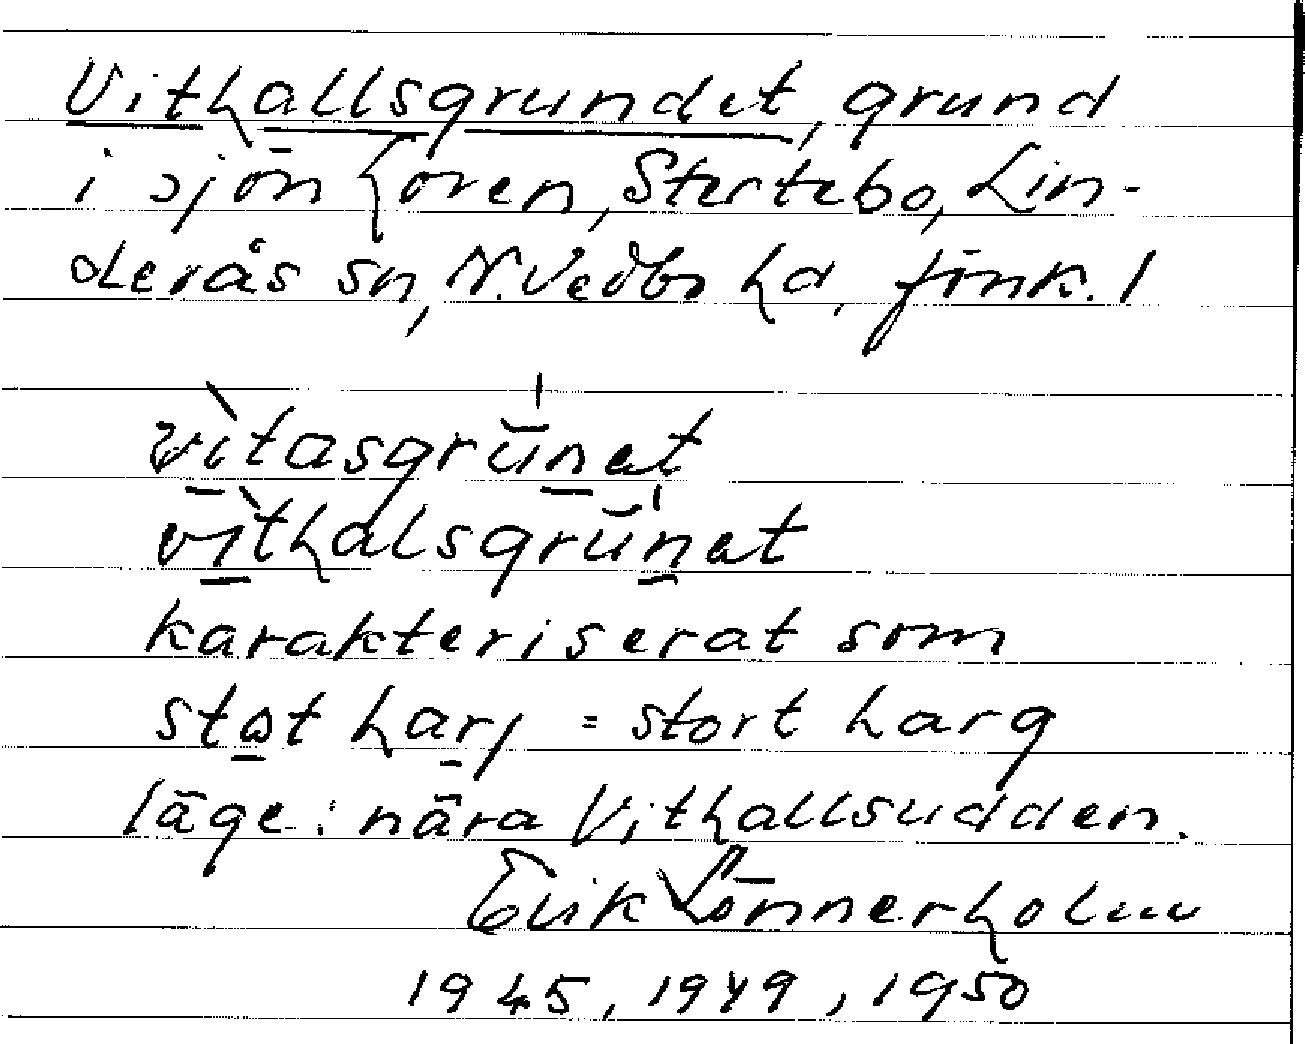 Vithallsgrundet, grund
i sjön Loren, Stertebo, Lin-
derås sn, N. Vedbo hd, Jönk. l
vìtasgrŭnet
vìthalsgrŭnet
karakteriserat som
stωt harj = stort harg
läge: nära Vithallsudden.
Erik Lönnerholm
1945, 1949, 1950